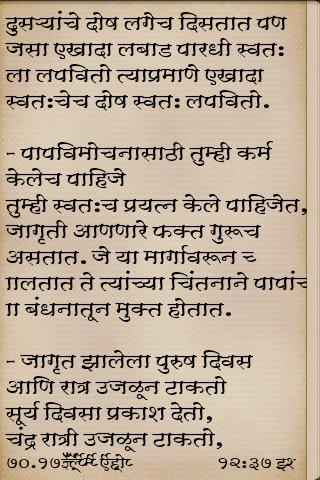 दुसऱ्यांचे दोष लगेच दिसतात पण
जसा एखादा लबाड पारधी स्वत:
ला लपवितो त्याप्रमाणे एखादा
स्वत:चेच दोष स्वत: लपवितो.
- पापविमोचनासाठी तुम्ही कर्म
केलेच पाहिजे
तुम्ही स्वत:च प्रयत्न केले पाहिजेत,
जागृती आणणारे फक्त गुरूच
असतात. जे या मार्गावरून च
ालतात ते त्यांच्या चिंतनाने पापांच
ा बंधनातून मुक्त होतात.
- जागृत झालेला पुरुष दिवस
आणि रात्र उजळून टाकतो
सूर्य दिवसा प्रकाश देतो,
चंद्र रात्री उजळून टाकतो,
७०.१७
१२:३७